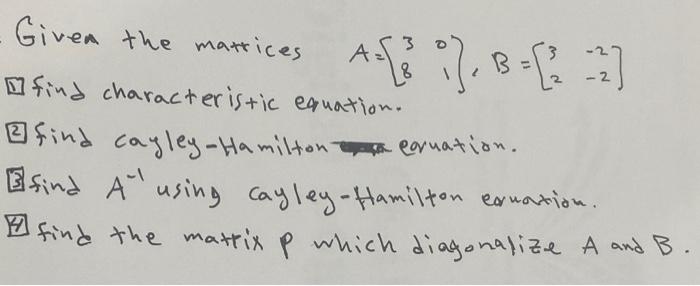 Given the matrices A=[3 0 8 1], B=[3 -2 2 -2]
1 find characteristic equation.
2 find cayley-Hamilton equation.
3 find A⁻¹ using cayley-Hamilton equation.
4 find the matrix p which diagonalize A and B.